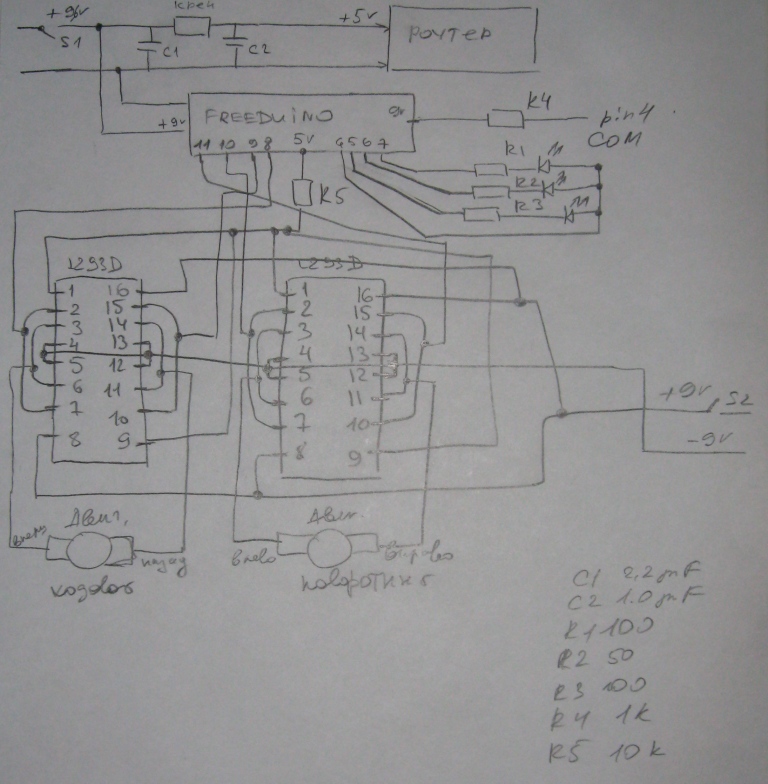 +9v крен +5v
S1 C1 C2 роутер
FREEDUINO 9v R4 pin4
+9v COM
11 10 9 8 5v 4 5 6 7
R1
R2
R3
R5
L293D L293D
1 16 1 16
2 15 2 15
3 14 3 14
4 13 4 13
5 12 5 12
6 11 6 11
7 10 7 10
8 9 8 9
+9v S2
-9v
Двиг. Двиг.
назад влево вправо
ходовой
C1 2,2 mF
C2 1.0 mF
R1 100
R2 50
R3 100
R4 1k
R5 10k